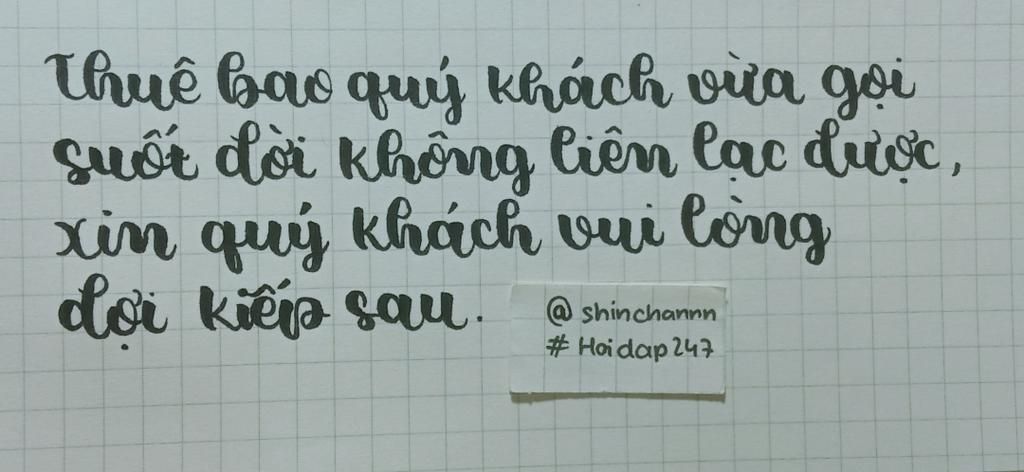 Thuê bao quý khách vừa gọi
suốt đời không liên lạc được,
xin quý khách vui lòng
đợi kiếp sau.
@ shinchannn
# Hoidap247